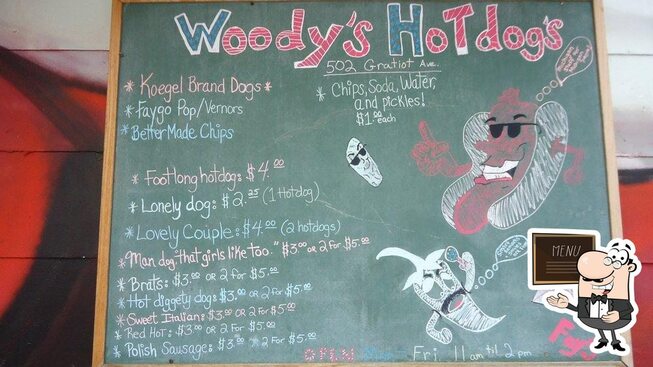 Woody's HoTdog's
502 Gratiot Ave.
* Koegel Brand Dogs *
* Faygo Pop/Vernors
* BetterMade Chips
* Chips, Soda, Water,
and pickles!
$1.00 each
* Footlong hotdog: $4.00
* Lonely dog: $2.25 (1 Hotdog)
* Lovely Couple: $4.00 (2 hotdogs)
*"Man dog "that girls like too." $3.00 OR 2 FOR $5.00
* Brats: $3.00 OR 2 FOR $5.00
* Hot diggety dog: $3.00 OR 2 FOR $5.00
* Sweet Italian: $3.00 OR 2 FOR $5.00
* Red Hot: $3.00 OR 2 FOR $5.00
* Polish Sausage: $3.00 OR 2 FOR $5.00
OPEN Fri 11am til 2pm
MENU